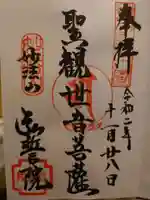 奉拝
令和二年
十一月廿八日
聖観世音菩薩
妙法山